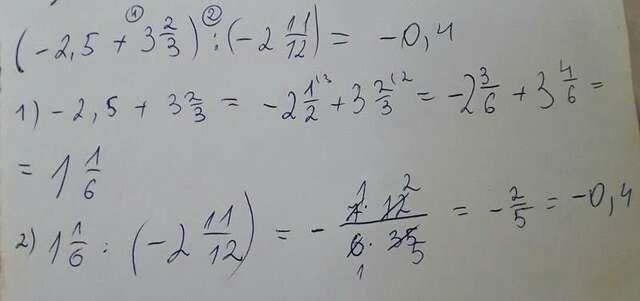 ① ②
(-2,5 + 3 2/3) : (-2 11/12) = -0,4
1) -2,5 + 3 2/3 = -2 1/2 ¹³ + 3 2/3 ¹² = -2 3/6 + 3 4/6 =
= 1 1/6
2) 1 1/6 : (-2 11/12) = - 1 2 7 · 12 / 6 · 35 1 5 = - 2/5 = -0,4